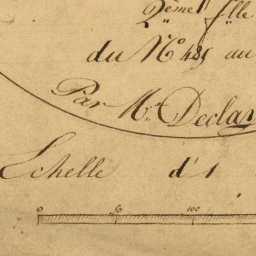 2ème flle
du No 485 au
Par Mr. Declar
Echelle d'1
0 50 100